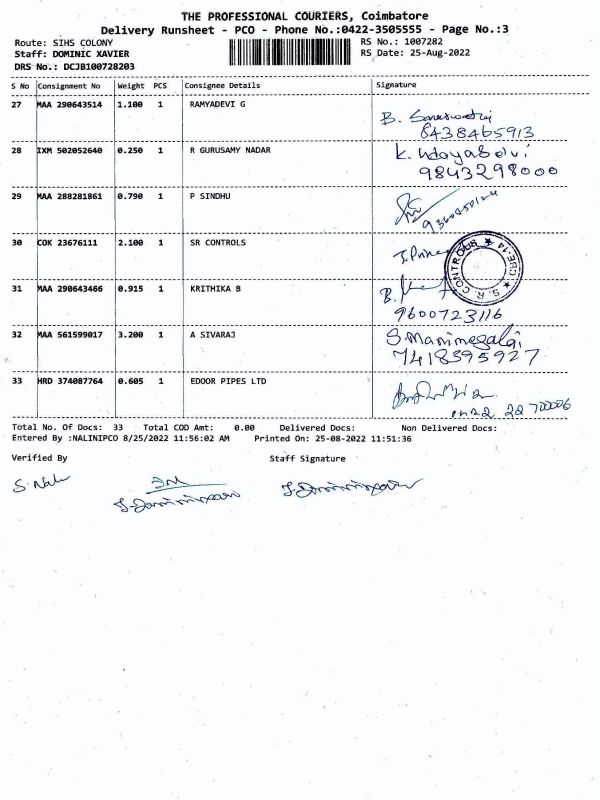 THE PROFESSIONAL COURIERS, Coimbatore
Delivery Runsheet - PCO - Phone No.:0422-3505555 - Page No.:3
Route: SIHS COLONY
Staff: DOMINIC XAVIER
DRS No.: DCJB100728203
RS No.: 1007282
RS Date: 25-Aug-2022
S No Consignment No Weight PCS Consignee Details Signature
27 MAA 290643514 1.100 1 RAMYADEVI G
B. Saraswathi
8438465913
28 IXM 502052640 0.250 1 R GURUSAMY NADAR
K. Udayaselvi
9843298000
29 MAA 288281861 0.790 1 P SINDHU
30 COK 23676111 2.100 1 SR CONTROLS
S.R. CONTROLS ★ CBE-14 ★
31 MAA 290643466 0.915 1 KRITHIKA B
B.
9600723116
32 MAA 561599017 3.200 1 A SIVARAJ
S.Manimegalai
7418595927
33 HRD 374087764 0.605 1 EDOOR PIPES LTD
Total No. Of Docs: 33 Total COD Amt: 0.00 Delivered Docs: Non Delivered Docs:
Entered By :NALINIPCO 8/25/2022 11:56:02 AM Printed On: 25-08-2022 11:51:36
Verified By Staff Signature